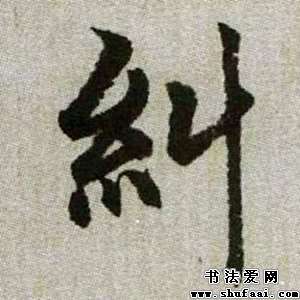 糾
书法爱网
www.shufaai.com